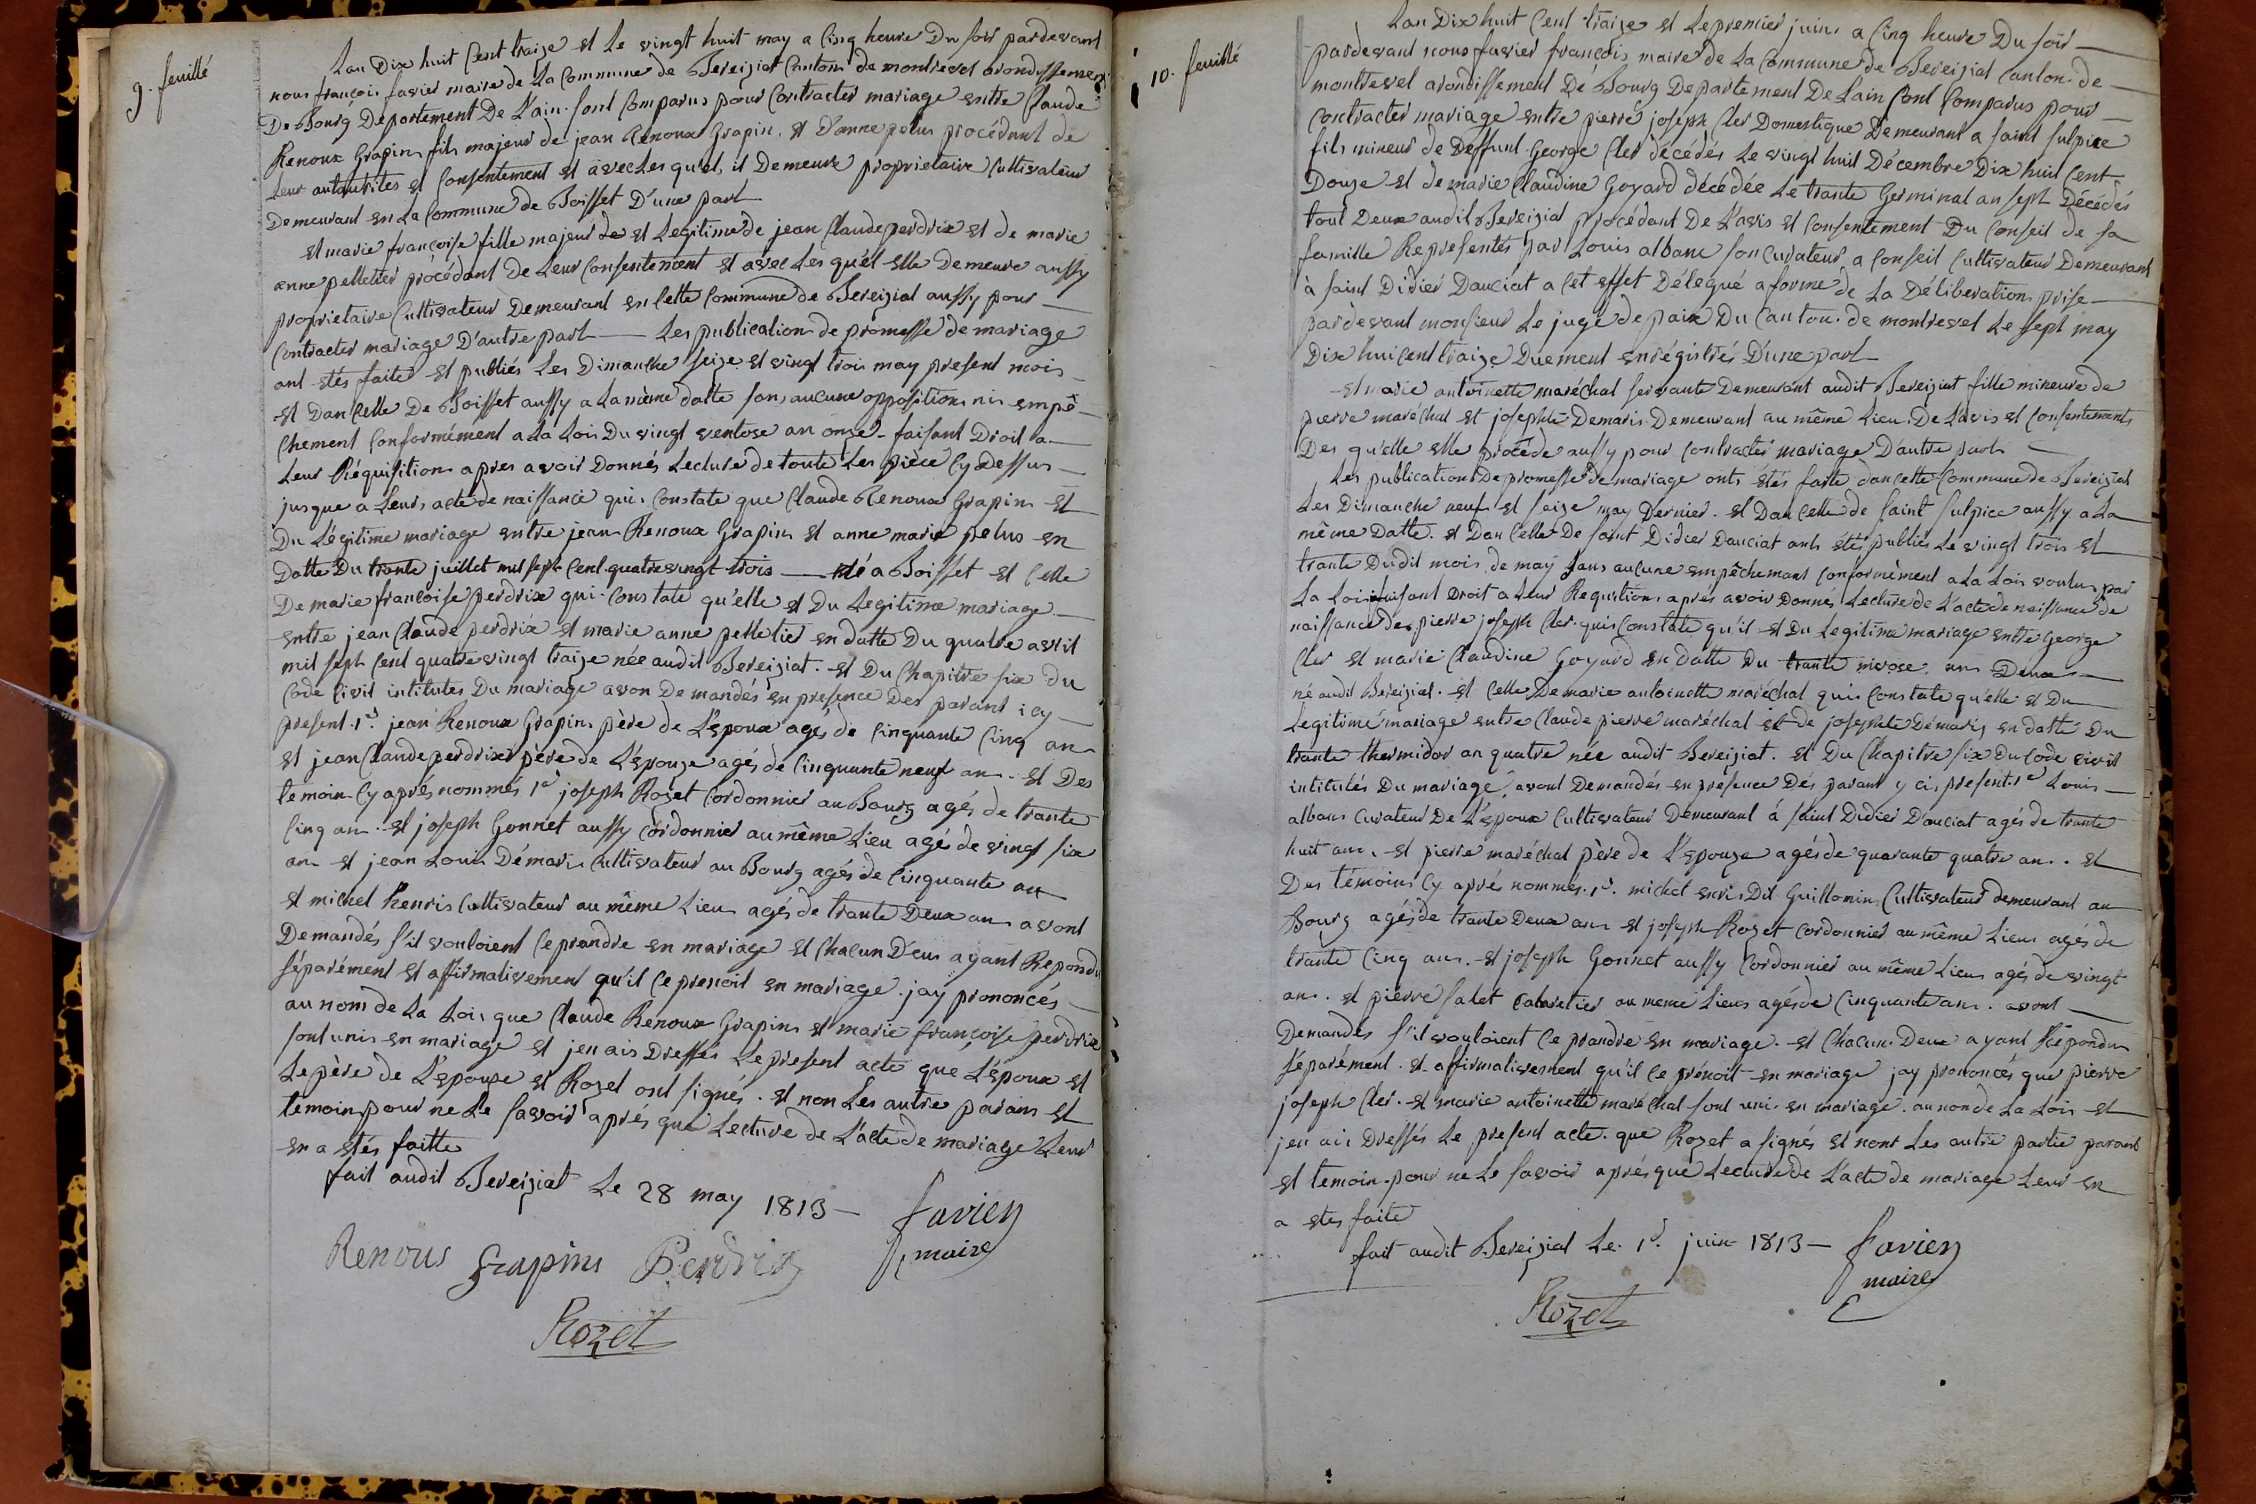 9. feuillé
Lan Dix huit Cent traize et Le vingt huit may a Cinq heure Du soir pardevant
nous françois favier maire de La Commune de Bereiziat Canton de montrevel arondissement
De Bourg Departement De L'ain sont Comparus pour Contracter mariage entre Claude
Renoux Grapin fils majeur de jean Renoux Grapin et d'anne pelus procédant de
Leur autaurités et Consentement et avec Les quel, il Demeure proprietaire Cultivateur
Demeurant en La Commune de Boisset D'une part
et marie francoise fille majeur de et Legitime de jean Claude perdrix et de marie
anne pelletier procédant De Leur Consentement et avec Les qu'el elle Demeure aussy
proprietaire Cultivateur Demeurant en Cette Commune de Bereiziat aussy pour
Contracter mariage D'autre part Les publication de promesse de mariage
ont étés faite et publiés Les Dimanche seize et vingt trois may present mois
et Dan Celle De Boisset aussy a La même datte sans aucune opposition ni empê-
chement Conformément a La Loi Du vingt ventose an onze faisant Droit a
Leur Réquisition apres avoir Donnés Lecture de toute Les pièce Cy dessus
jusque a Leurs acte de naissance qui Constate que Claude Renoux Grapin et
Du Légitime mariage entre jean Renoux Grapin et anne marie pelus en
Datte Du trante juillet mil sept Cent quatrevingt trois né a Boisset et Celle
De marie francoise perdrix qui Constate qu'elle et Du Legitime mariage
entre jean Claude perdrix et marie anne pelletier en datte Du quatre avril
mil sept Cent quatrevingt traize née audit Bereiziat. et Du Chapitre six du
Code Civil intitutés Du mariage avon De mandés en presence Des parant icy
present. 1er jean Renoux Grapin père de L'epoux agés de Cinquante Cinq an
et jean Claude perdrix père de L'epouze agés de Cinquante neuf an. et Des
temoin Cy aprés nommés 1er joseph Rozet Cordonnier au Bourg agés de trante
Cinq an. et joseph Gonnet aussy Cordonnier au même Lieu agé de vingt six
an et jean Loui Démari Cultivateur au Bourg agés de Cinquante an
et michel Henris Cultivateur au même Lieu agés de trante Deux an avont
Demandés s'il vouloient Ce prandre en mariage et Chacun D'eux ayant Repondu
séparément et affirmativement qu'il Ce prenoit en mariage. jay prononcés
au nom de La Loi, que Claude Renoux Grapin et marie françoise perdrix
sont unis en mariage et jen ais Dressés Le present acte que L'epoux et
Le père de L'epouze et Rozet ont signés. et non Les autre parain et
temoin pour ne Le savoir aprés que Lecture de L'acte de mariage Leur
en a étés faitte
fait audit Bereiziat Le 28 may 1813
favier
maire
Renous Grapins Perdrix
Rozet
10. feuillé
Lan Dix huit Cent traize et Le premier juin a Cinq heure Du soir
pardevant nous favier françois maire de La Commune de Bereiziat Canton de
montrevel arondissement De Bourg Departement De Lain sont Comparus pour
Contracter mariage entre pierre joseph Cler Domestique Demeurant a saint sulpice
fils mineur de Deffunt George Cler décédés Le vingt huit Décembre Dix huit Cent
Douze et de marie Claudine Goyard décédée Le trante Germinal an sept Décédés
tout Deux audit Bereiziat procédant De L'avis et Consentement Du Conseil de sa
famille Representés par Louis albanc son Curateur a Conseil Cultivateur Demeurant
à saint Didier Dauciat a Cet effet Délegué a forme de La Déliberation prise
pardevant monsieur Le juge de paix Du Canton de montrevel Le sept may
Dix huicent traize Duement enrégistrés D'une part
et marie antoinette maréchal servante Demeurant audit Bereiziat fille mineure de
pierre maréchal et josephte Demaris Demeurant au même Lieu. De Lavis et Consentement
Des qu'elle elle procède aussy pour Contracter mariage D'autre part
Les publication De promesse de mariage onts étés faite dan cette Commune de Bereiziat
Les Dimanche neuf et seize may Dernier. et Dan Cette de saint sulpice aussy a La
même Datte. et Dan Cette De saint Didier Dauciat ont étés publiés Le vingt trois et
trante Dudit mois de may sans aucune empêchemant Conformément a La Loi voulu par
La Loi faisant Droit a Leur Requition aprés avoir Donnés Lecture de L'acte de naissance de
naissance de pierre joseph Cler qui Constate qu'il et Du Legitime mariage entre George
Cler et marie Claudine Goyard en datte Du trante nivose an Deux
né audit Bereiziat. et Celle De marie antoinette maréchal qui Constate qu'elle et Du
Legitime mariage entre Claude pierre maréchal et de josephte Démaris en datte Du
trante thermidor an quatre née audit Bereiziat. et Du Chapitre six Du Code civil
intitulés Du mariage, avont Demandés en présence Dés parant y ci present. 1er Louis
albanc Curateur De L'epoux Cultivateur Demeurant á saint Didier D'auciat agés de trante
huit an. et pierre maréchal père de L'epouze agés de quarante quatre an. et
Des témoins Cy aprés nommés. 1er. michel enri Dit Guillomin Cultivateur demeurant au
Bourg agés de trante Deux an et joseph Rozet Cordonnier au même Lieu agés de
trante Cinq an. et joseph Gonnet aussy Cordonnier au même Lieu agés de vingt
an. et pierre salet Cabaretier au meme Lieu agés de Cinquante an. avont
Demandés s'il vouloient Ce prandre en mariage. et Chacun Deux ayant Répondu
séparément. et affirmativement qu'il Ce prenoit en mariage jay prononcés que pierre
joseph Cler. et marie antoinette maréchal sont uni en mariage. au non de La Loi et
jen ais Dressés Le present acte. que Rozet a signés et nont Les autre partie parant
et temoin. pour ne Le savoir aprés que Lecture de L'acte de mariage Leur en
a étés faite
fait audit Bereiziat Le 1er. juin 1813
favier
maire
Rozet